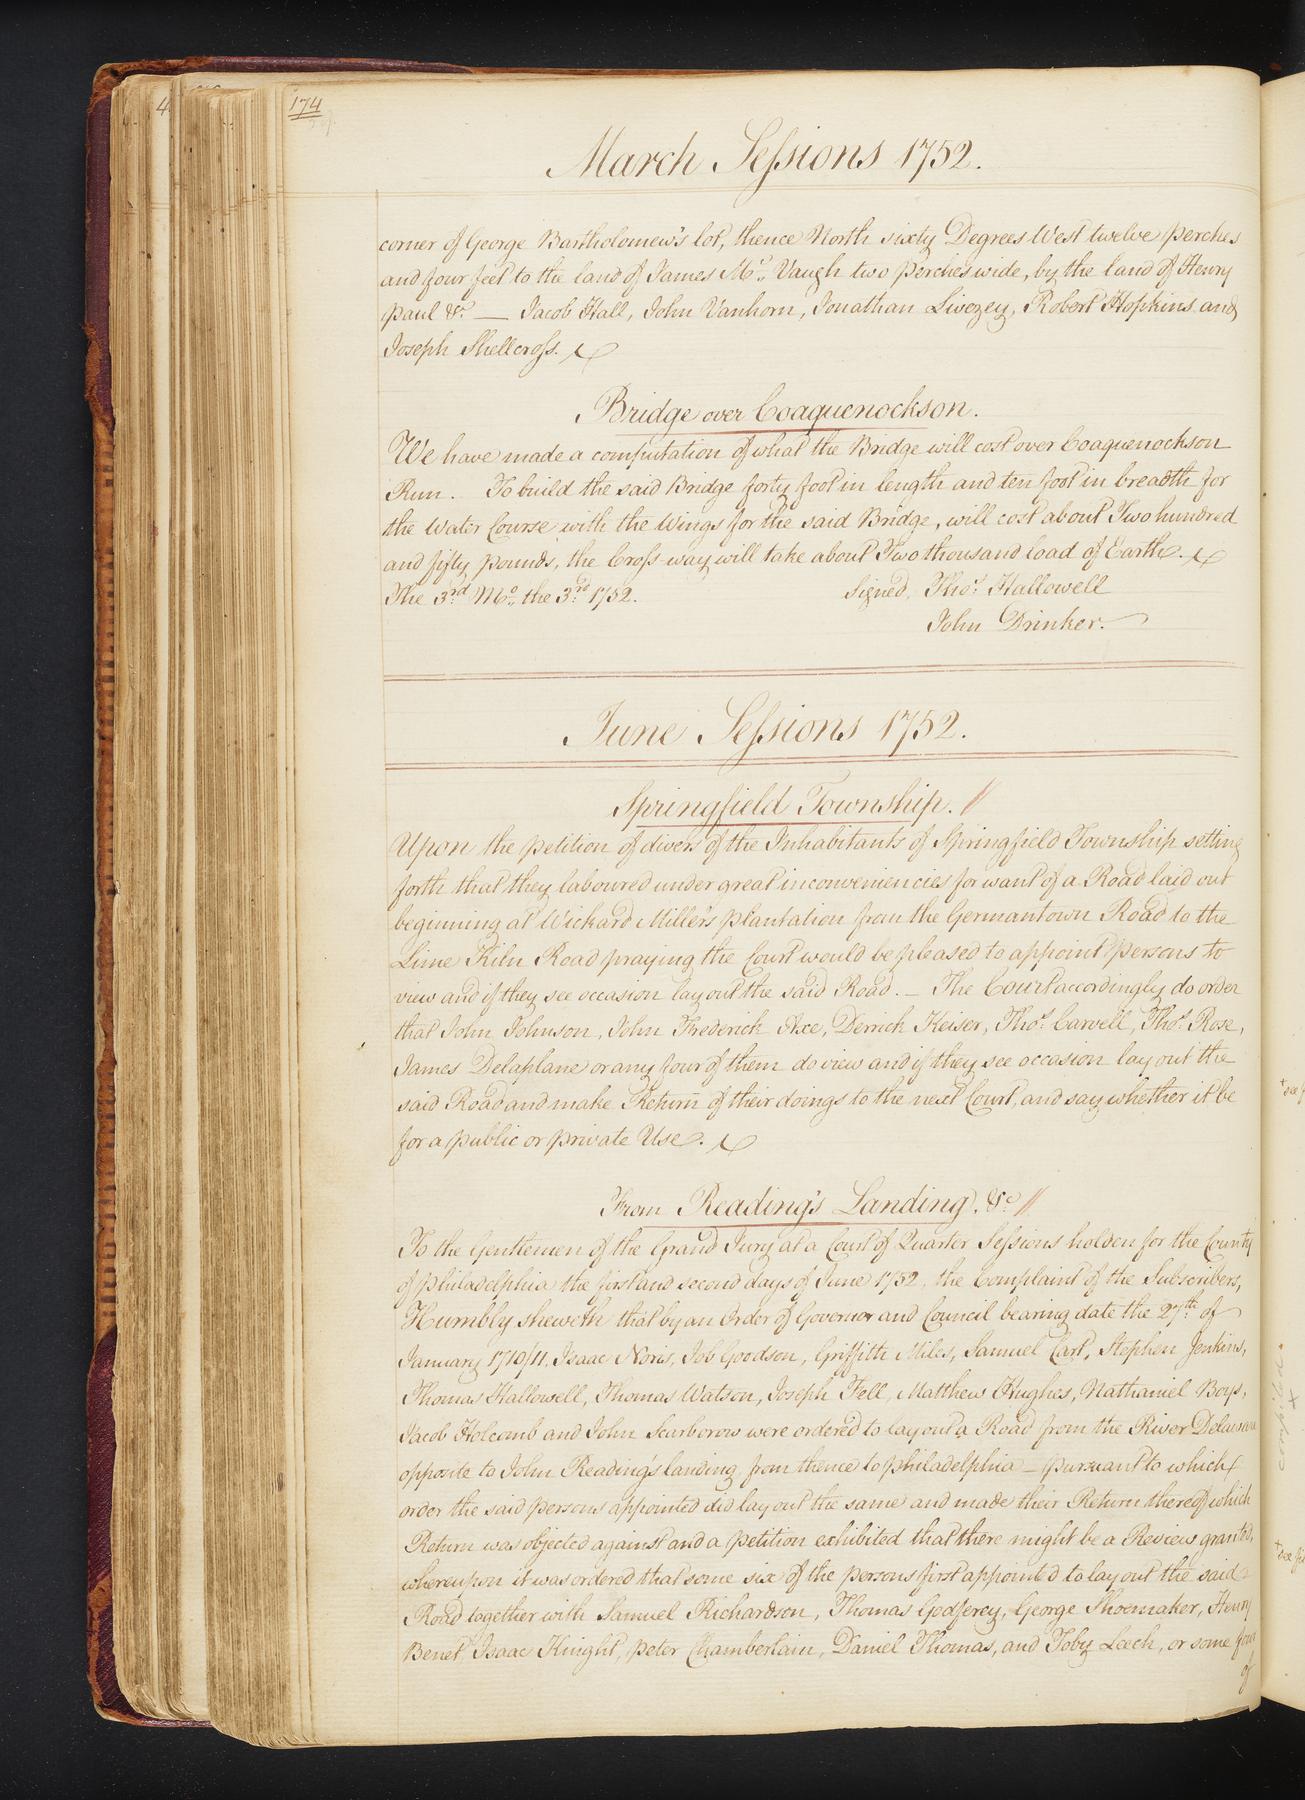 174
March Sessions 1752.
corner of George Bartholomew's lot, thence North sixty Degrees West twelve perches
and four feet to the land of James Mc. Vaugh two perches wide, by the land of Henry
Paul &c. — Jacob Hall, John Vanhorn, Jonathan Livezey, Robert Hopkins and
Joseph Shellcross.
Bridge over Coaquenockson.
We have made a computation of what the Bridge will cost over Coaquenockson
Run. To build the said Bridge forty foot in length and ten foot in breadth for
the Water Course with the Wings for the said Bridge, will cost about Two hundred
and fifty pounds, the Cross-way will take about Two thousand load of Earth.
The 3rd Mo. the 3rd 1752. Signed, Thos. Hallowell
John Drinker.
June Sessions 1752.
Springfield Township. //
Upon the petition of divers of the Inhabitants of Springfield Township setting
forth that they laboured under great inconveniencies for want of a Road laid out
beginning at Wickard Miller's plantation from the Germantown Road to the
Lime Kiln Road praying the Court would be pleased to appoint persons to
view and if they see occasion lay out the said Road. — The Court accordingly do order
that John Johnson, John Frederick Axe, Derrick Keiser, Thos. Carvell, Thos. Rose,
James Delaplane or any four of them do view and if they see occasion lay out the
said Road and make Return of their doings to the next Court, and say whether it be
for a public or private Use.
From Reading's Landing, &c. //
To the Gentlemen of the Grand Jury at a Court of Quarter Sessions holden for the County
of Philadelphia the first and second days of June 1752, the Complaint of the Subscribers,
Humbly sheweth that by an Order of Governor and Council bearing date the 27th of
January 1710/11, Isaac Noris, Job Goodson, Griffith Miles, Samuel Cart, Stephen Jenkins,
Thomas Hallowell, Thomas Watson, Joseph Fell, Matthew Hughes, Nathaniel Boys,
Jacob Holcomb and John Scarborow were ordered to lay out a Road from the River Delaware
opposite to John Reading's landing, from thence to Philadelphia — pursuant to which
order the said persons appointed did lay out the same and made their Return thereof which
Return was objected against and a petition exhibited that there might be a Review granted,
whereupon it was ordered that some six of the persons first appointed to lay out the said
Road together with Samuel Richardson, Thomas Godferey, George Shoemaker, Henry
Benet, Isaac Knight, Peter Chamberlain, Daniel Thomas, and Toby Leech, or some four
of